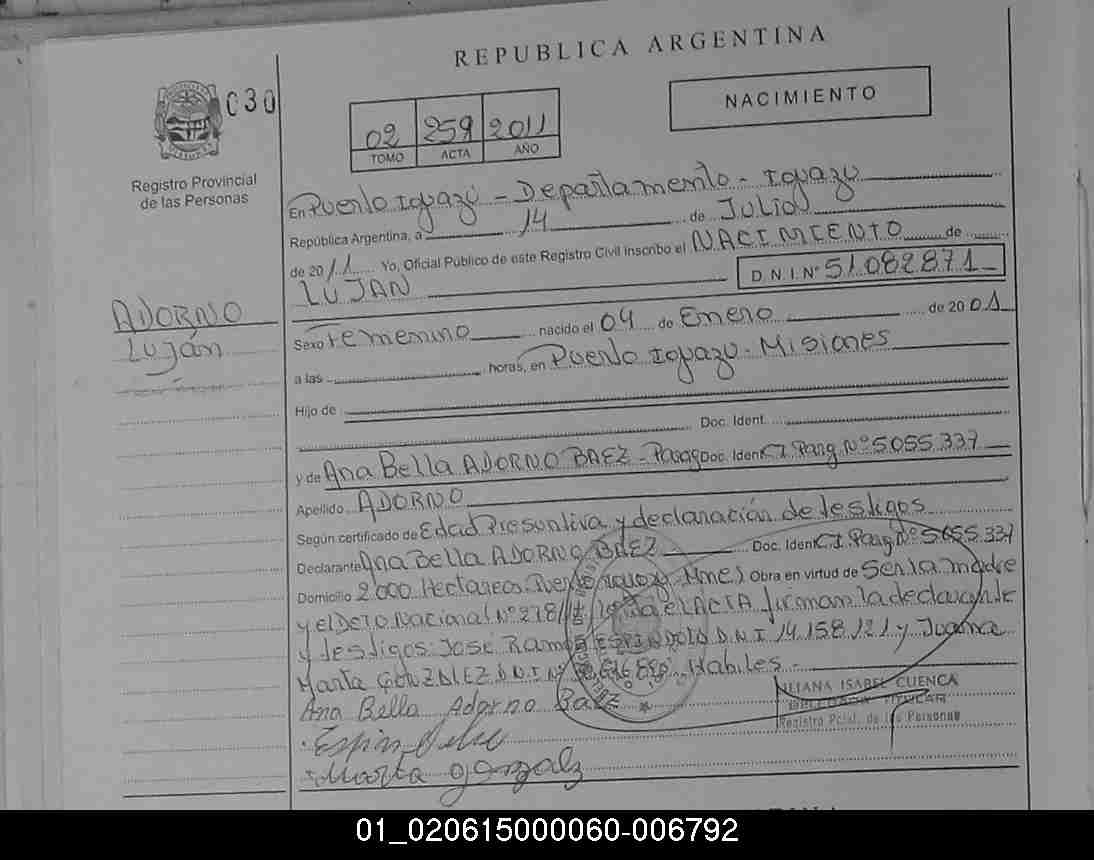 REPUBLICA ARGENTINA
030
NACIMIENTO
02 259 2011
TOMO ACTA AÑO
Registro Provincial
de las Personas
En Puerto Iguazú - Departamento - Iguazú
República Argentina, a 14 de Julio
de 2011 Yo, Oficial Público de este Registro Civil inscribo el NACIMIENTO de
LUJAN D.N.I.Nº 51.082.871
ADORNO
Luján
Sexo Femenino nacido el 04 de Enero de 2001
a las horas, en Puerto Iguazú - Misiones
Hijo de
Doc. Ident.
y de Ana Bella ADORNO BAEZ - Parag Doc. Ident C.I. Parag Nº 5.055.337
Apellido ADORNO
Según certificado de Edad Presuntiva y declaración de testigos
Declarante Ana Bella ADORNO BAEZ Doc. Ident C.I. Parag Nº 5.055.337
Domicilio 2000 Hectareas. Puerto Iguazú - Mnes Obra en virtud de Ser la madre
y el Dcto Nacional Nº 278/ el ACTA firman la declarante
y testigos: José Ramón ESPINDOLA D.N.I 14.158.121 y Juana
Marta GONZALEZ D.N.I Nº Hábiles.-
Ana Bella Adorno Baez
LILIANA ISABEL CUENCA
DELEGADA TITULAR
Registro Pcial. de las Personas
Marta gonzalz
01_020615000060-006792